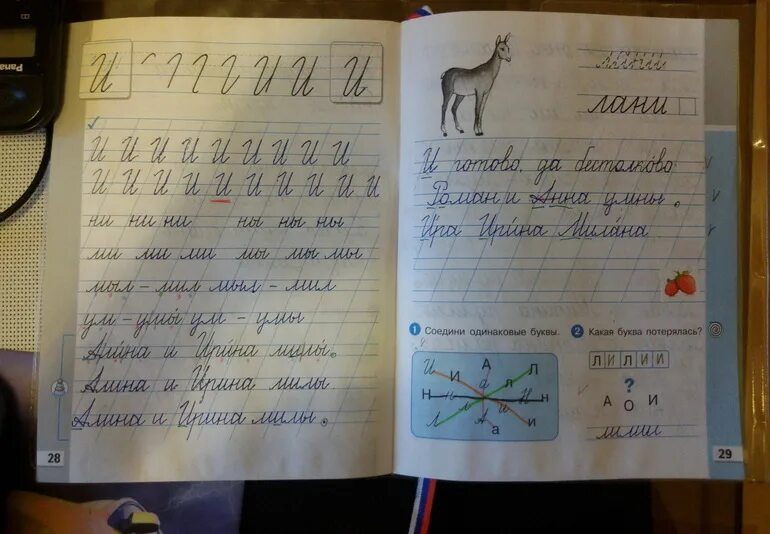 Pana
И И И И И
И И И И И И И И И
И И И И И И И И И И
ни ни ни ны ны ны
ми ми ми мы мы мы
мыл - мил мыл - мил
ум - умы ум - умы
Алина и Ирина милы.
Алина и Ирина милы
Алина и Ирина милы.
28
лани
И готово, да бестолково
Роман и Анна умны.
Ира Ирина Милана
1 Соедини одинаковые буквы.
И И А Л
Н н а л И н
Л л А и и
а
2 Какая буква потерялась?
ЛИЛИИ
?
А О И
лилии
29